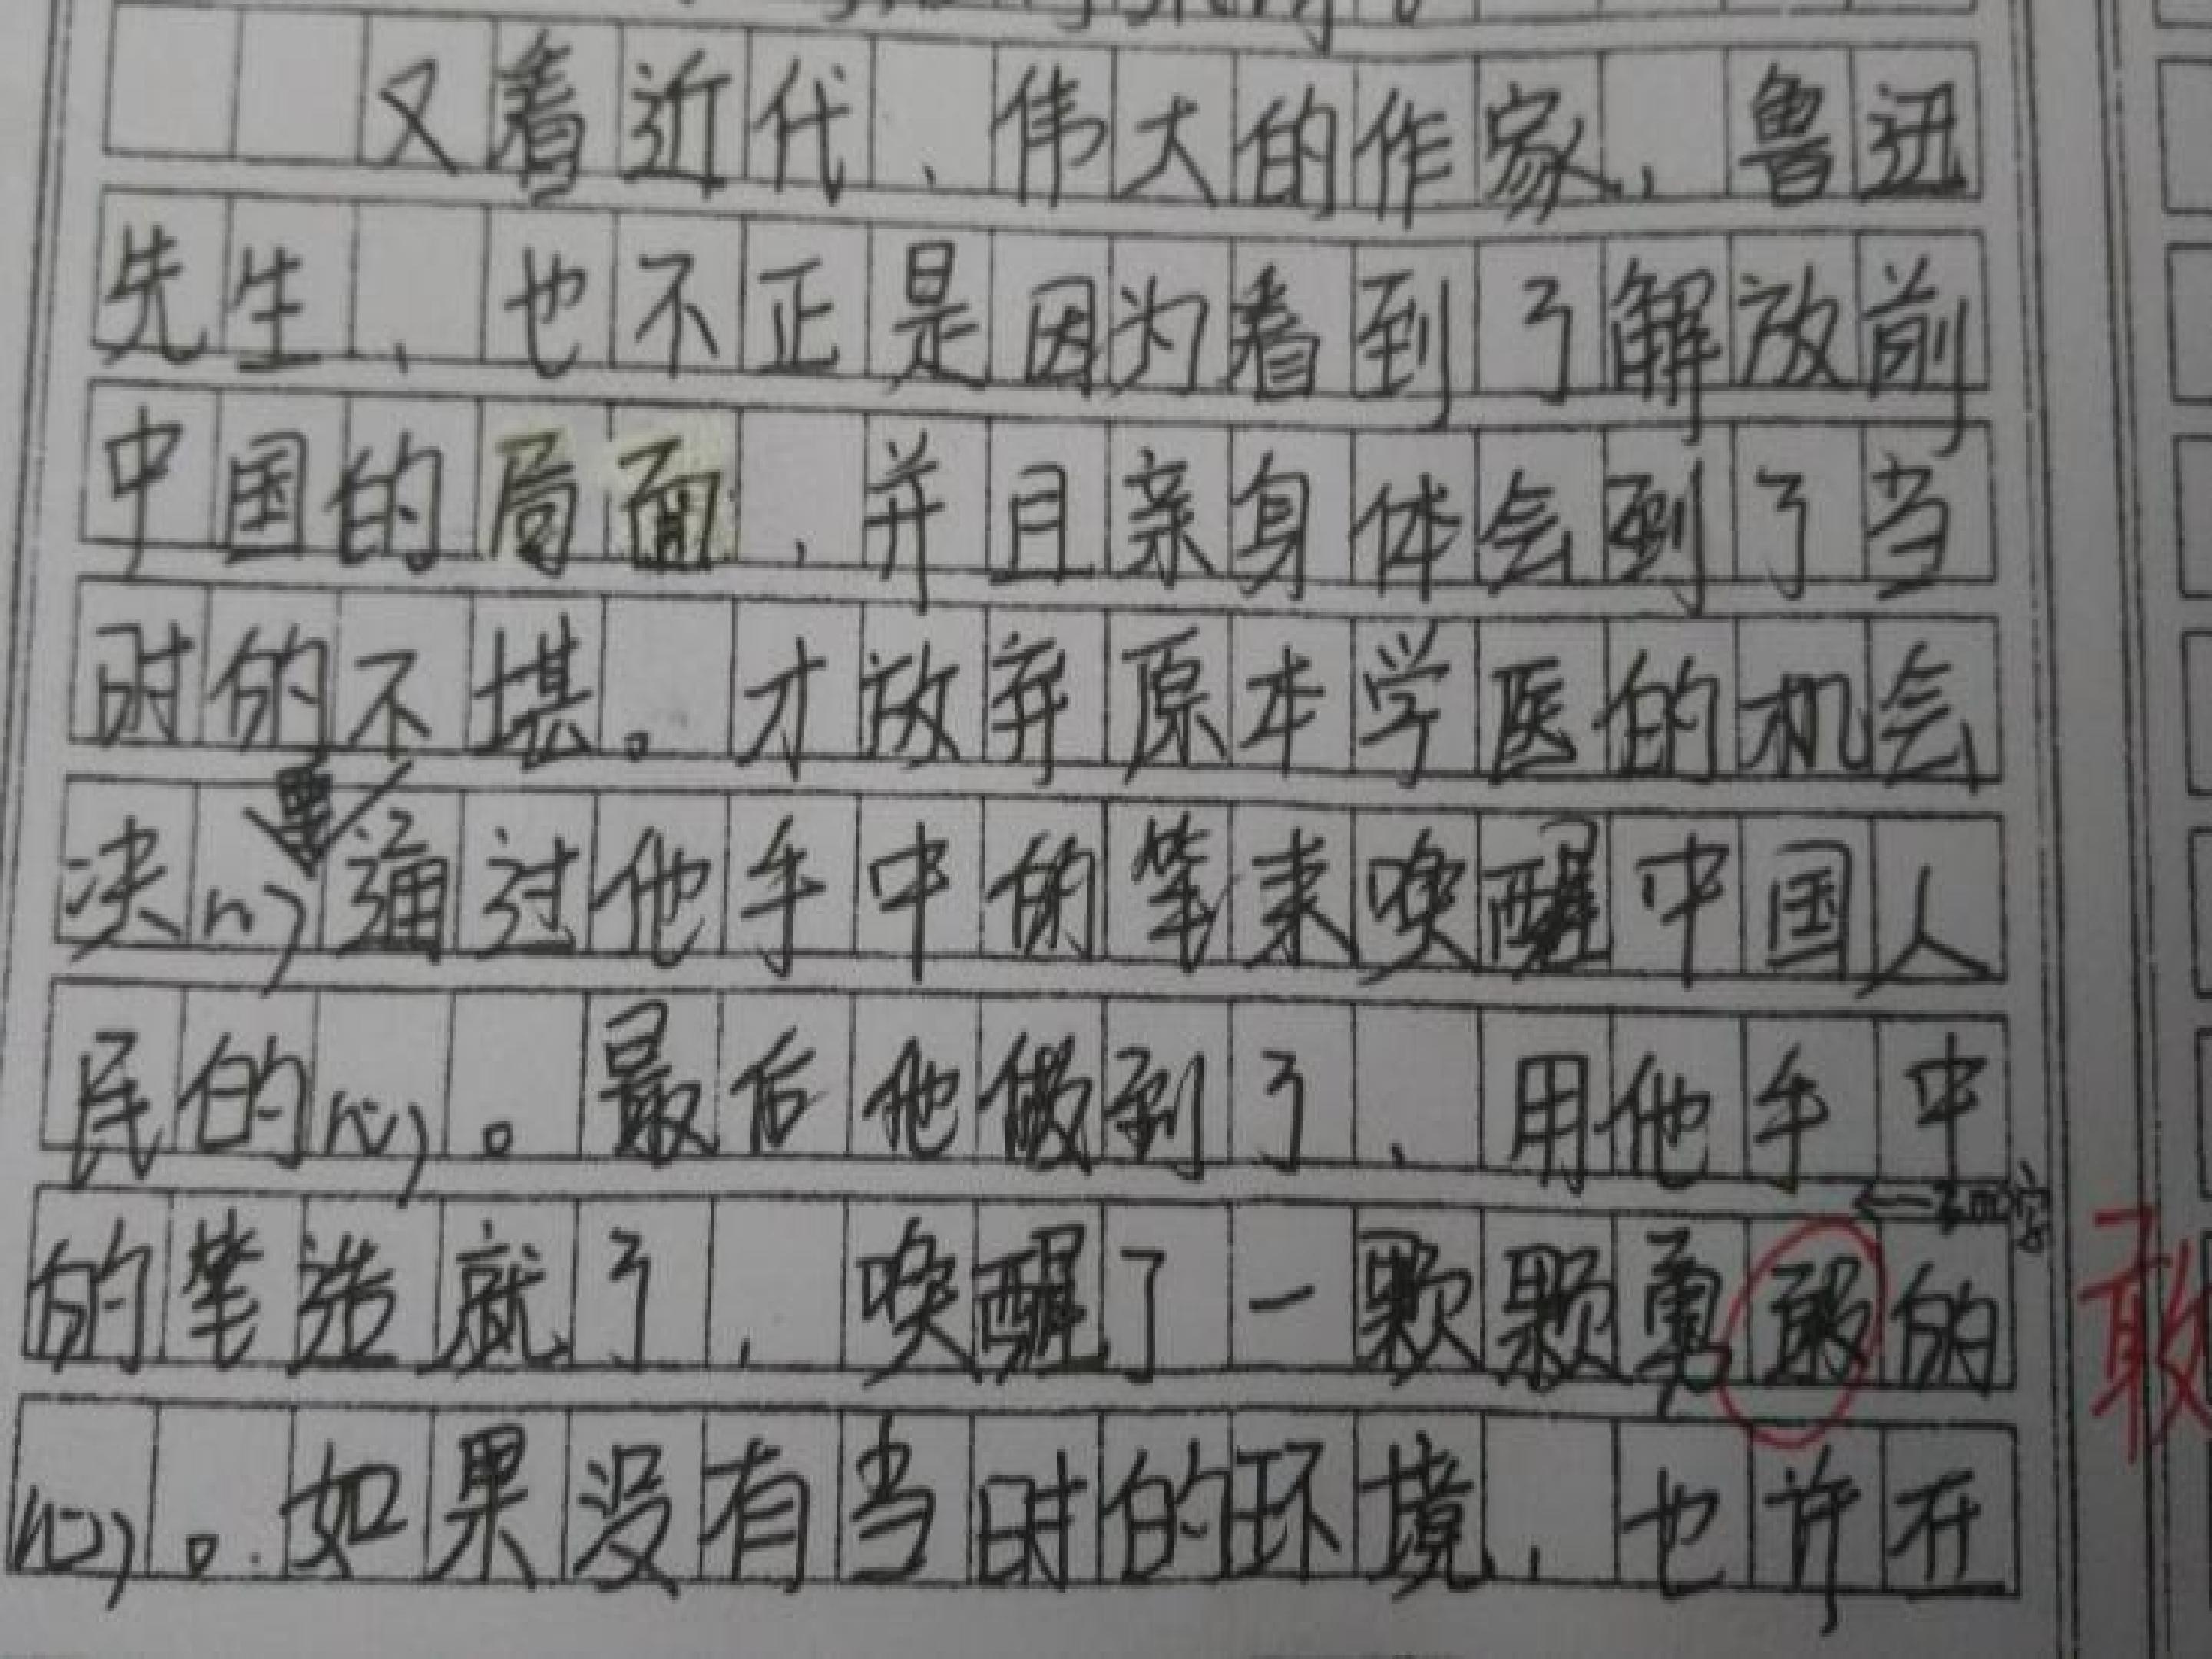 又看近代，伟大的作家，鲁迅
先生，也不正是因为看到了解放前
中国的局面，并且亲身体会到了当
时的不堪。才放弃原本学医的机会
决心要通过他手中的笔来唤醒中国人
民的心。最后他做到了，用他手中
的笔造就了，唤醒了一颗颗勇敢的
心。如果没有当时的环境，也许在
敢